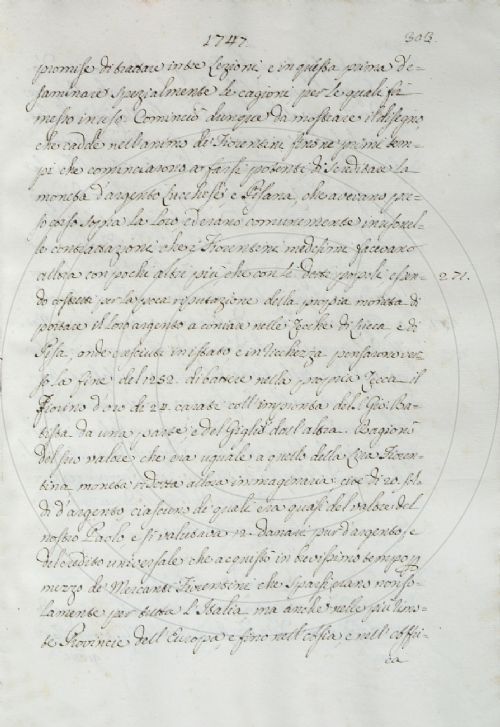 1747.
303.
promise di trattare in tre Lezioni, e in questa prima d'e=
saminare spezialmente le cagioni per le quali fu
messo in uso. Cominciò dunque da mostrare il disegno
che cadde nell'animo de' Fiorentini fino ne' primi tem=
pi che cominciarono a farsi potenti di screditare la
moneta d'argento Lucchese, e Pisana, che avevano pre=
so corso sopra la loro ed erano comunemente in uso nel=
le contrattazioni che i Fiorentini medesimi facevano
allora con pochi altri più, che con le dette popoli essen=
do costretti per la poca riputazione della propia moneta di
271.
portare il loro argento a coniar nelle Zecche di Lucca, e di
Pisa, onde cresciuti in istato e in ricchezza pensarono ver
so la fine del 1252. di battere nella propria Zecca il
Fiorino d'oro di 24. carati coll'impronta del S. Gio: Ba=
tista da una parte e del Giglio dall'altra. Ragionò
del suo valore che era uguale a quello della Lira Fioren=
tina, moneta ridotta allora immaginaria cioè di 20. sol=
di d'argento ciascuno de' quali era quasi del valore del
nostro Paolo e si valutava 12. danari pur d'argento, e
del credito universale che acquistò in brevissimo tempo p
mezzo de' Mercanti Fiorentini che spacciavano non so=
lamente per tutta l'Italia ma anche nelle più remo=
te Provincie dell'Europa, e fino nell'Assia e nell'Affri=
ca